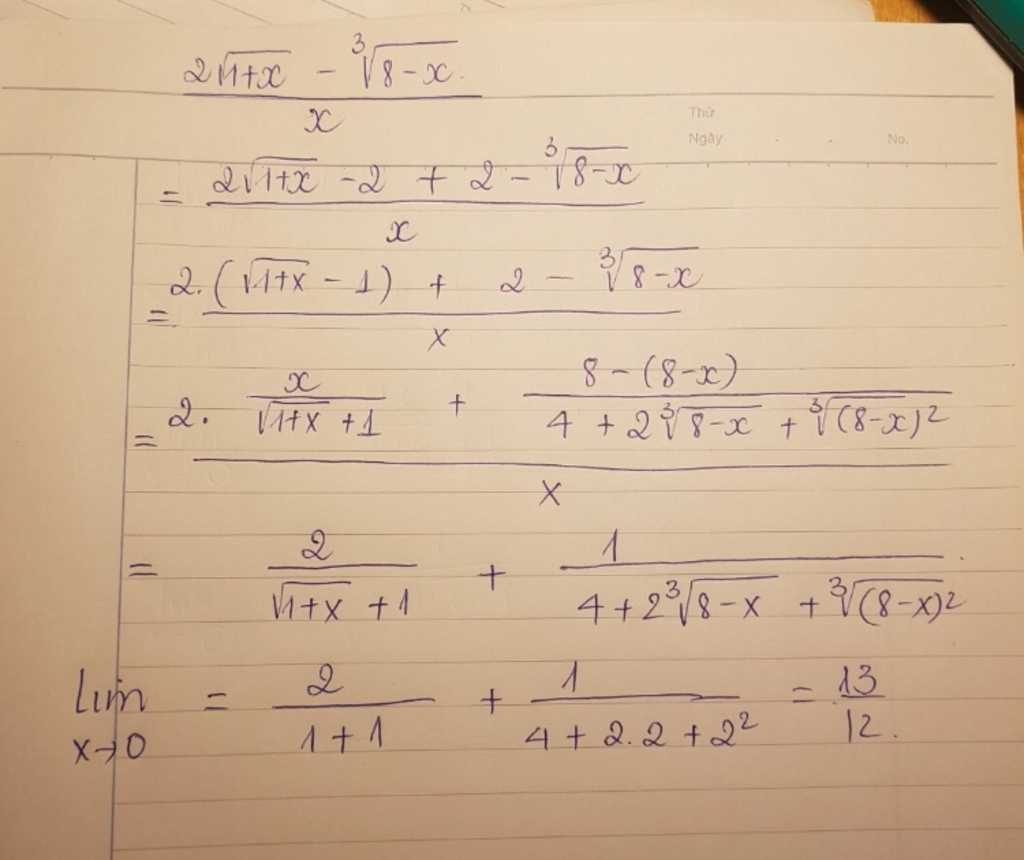 2√(1+x) - ³√(8-x)
x
Thứ
Ngày . . No.
= 2√(1+x) -2 + 2 - ³√(8-x)
x
= 2.(√(1+x) - 1) + 2 - ³√(8-x)
x
= 2. x/(√(1+x) +1) + (8-(8-x))/(4 + 2³√(8-x) + ³√(8-x)²)
x
= 2/(√(1+x) +1) + 1/(4+2³√(8-x) + ³√(8-x)²)
lim x→0 = 2/(1+1) + 1/(4+2.2+2²) = 13/12.